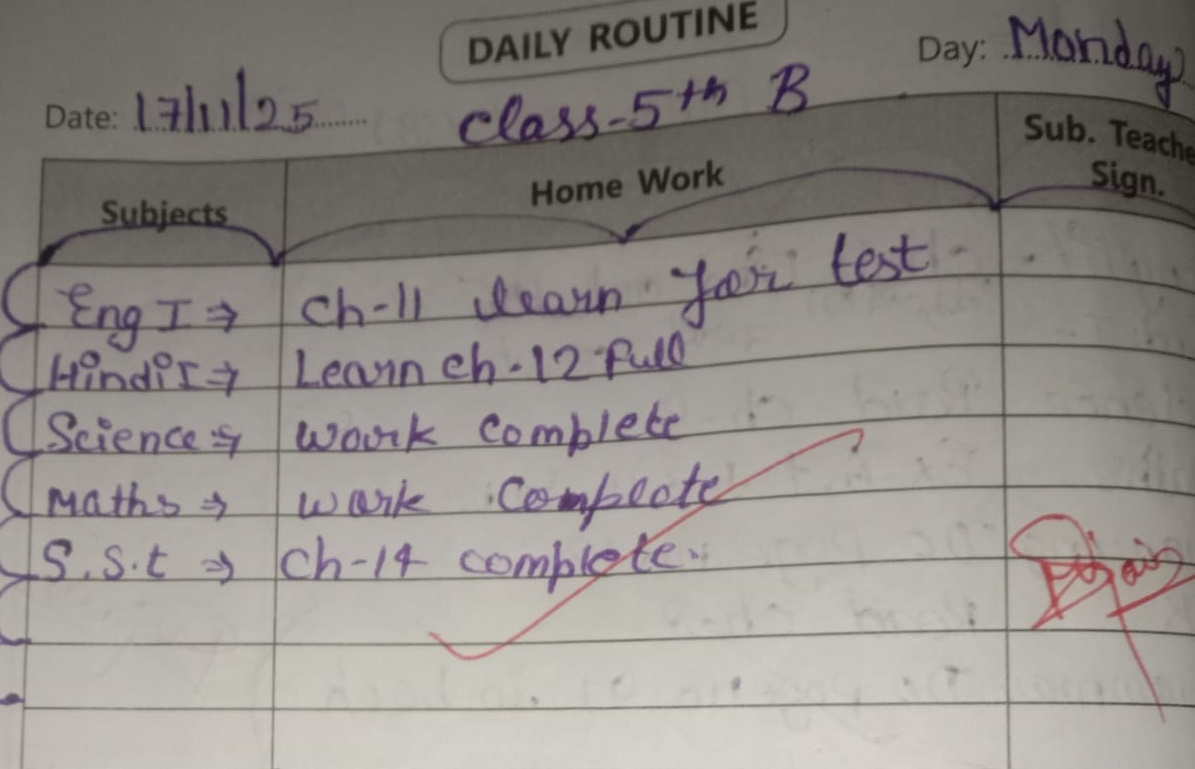 DAILY ROUTINE
Day: Monday
Date: 17/11/25
Class-5th B
Subjects Home Work Sub. Teache Sign.
Eng I ⇒ Ch-11 learn for test
Hindi I ⇒ Learn ch-12 full
Science ⇒ Work complete
Maths ⇒ work complete
S.s.t ⇒ Ch-14 complete.